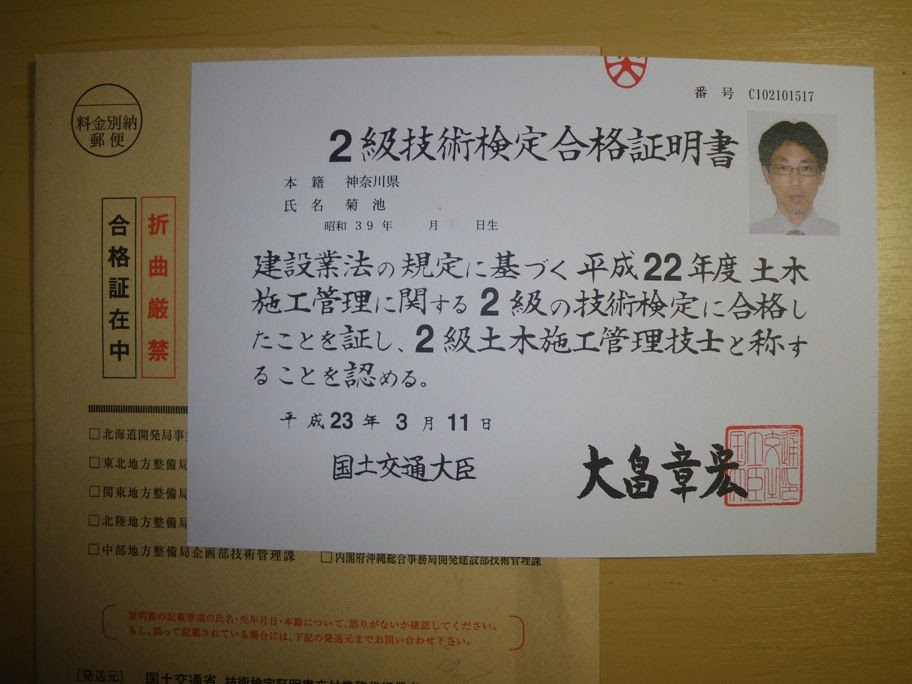 料金別納
郵便
合格証在中
折曲厳禁
番 号 C102101517
2級技術検定合格証明書
本 籍 神奈川県
氏 名 菊 池
昭和 39年 月 日生
建設業法の規定に基づく平成22年度土木
施工管理に関する2級の技術検定に合格し
たことを証し、2級土木施工管理技士と称す
ることを認める。
平成23年 3月 11日
国土交通大臣
大畠章宏
□北海道開発局事
□東北地方整備局
□関東地方整備局
□北陸地方整備局
□中部地方整備局企画部技術管理課
□内閣府沖縄総合事務局開発建設部技術管理課
証明書の記載事項の氏名・生年月日・本籍について、誤りがないか確認してください。
もし、誤って記載されている場合には、下記の発送元までお問い合わせ下さい。
[発送元] 国土交通省